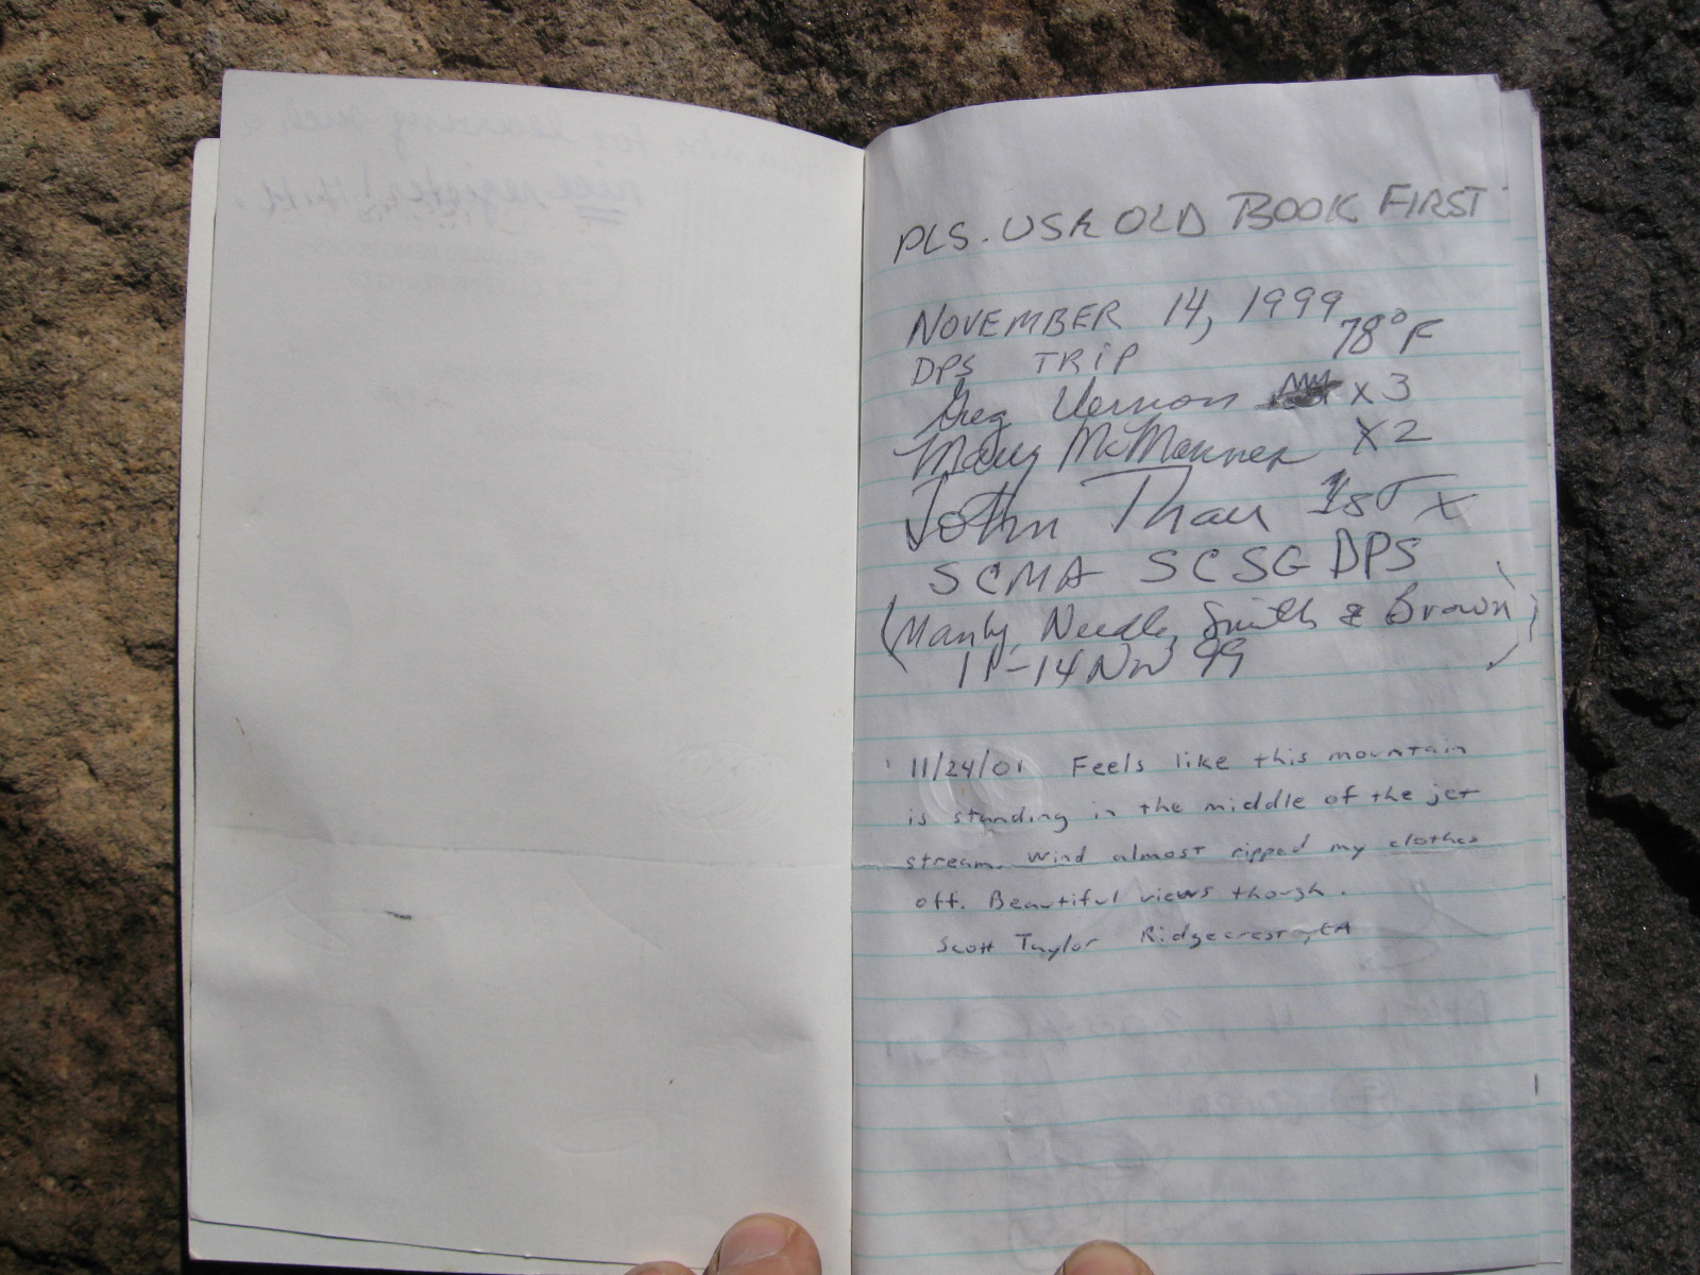 PLS. USE OLD BOOK FIRST
NOVEMBER 14, 1999
78°F
DPS TRIP
Greg Vernon x 3
Mary McMannes x 2
John Thau 1st x
SCMA SCSG DPS
(Manly, Needle, Smith & Brown)
11-14 Nov 99
11/24/01 Feels like this mountain
is standing in the middle of the jet
stream. Wind almost ripped my clothes
off. Beautiful views though.
Scott Taylor Ridgecrest, CA